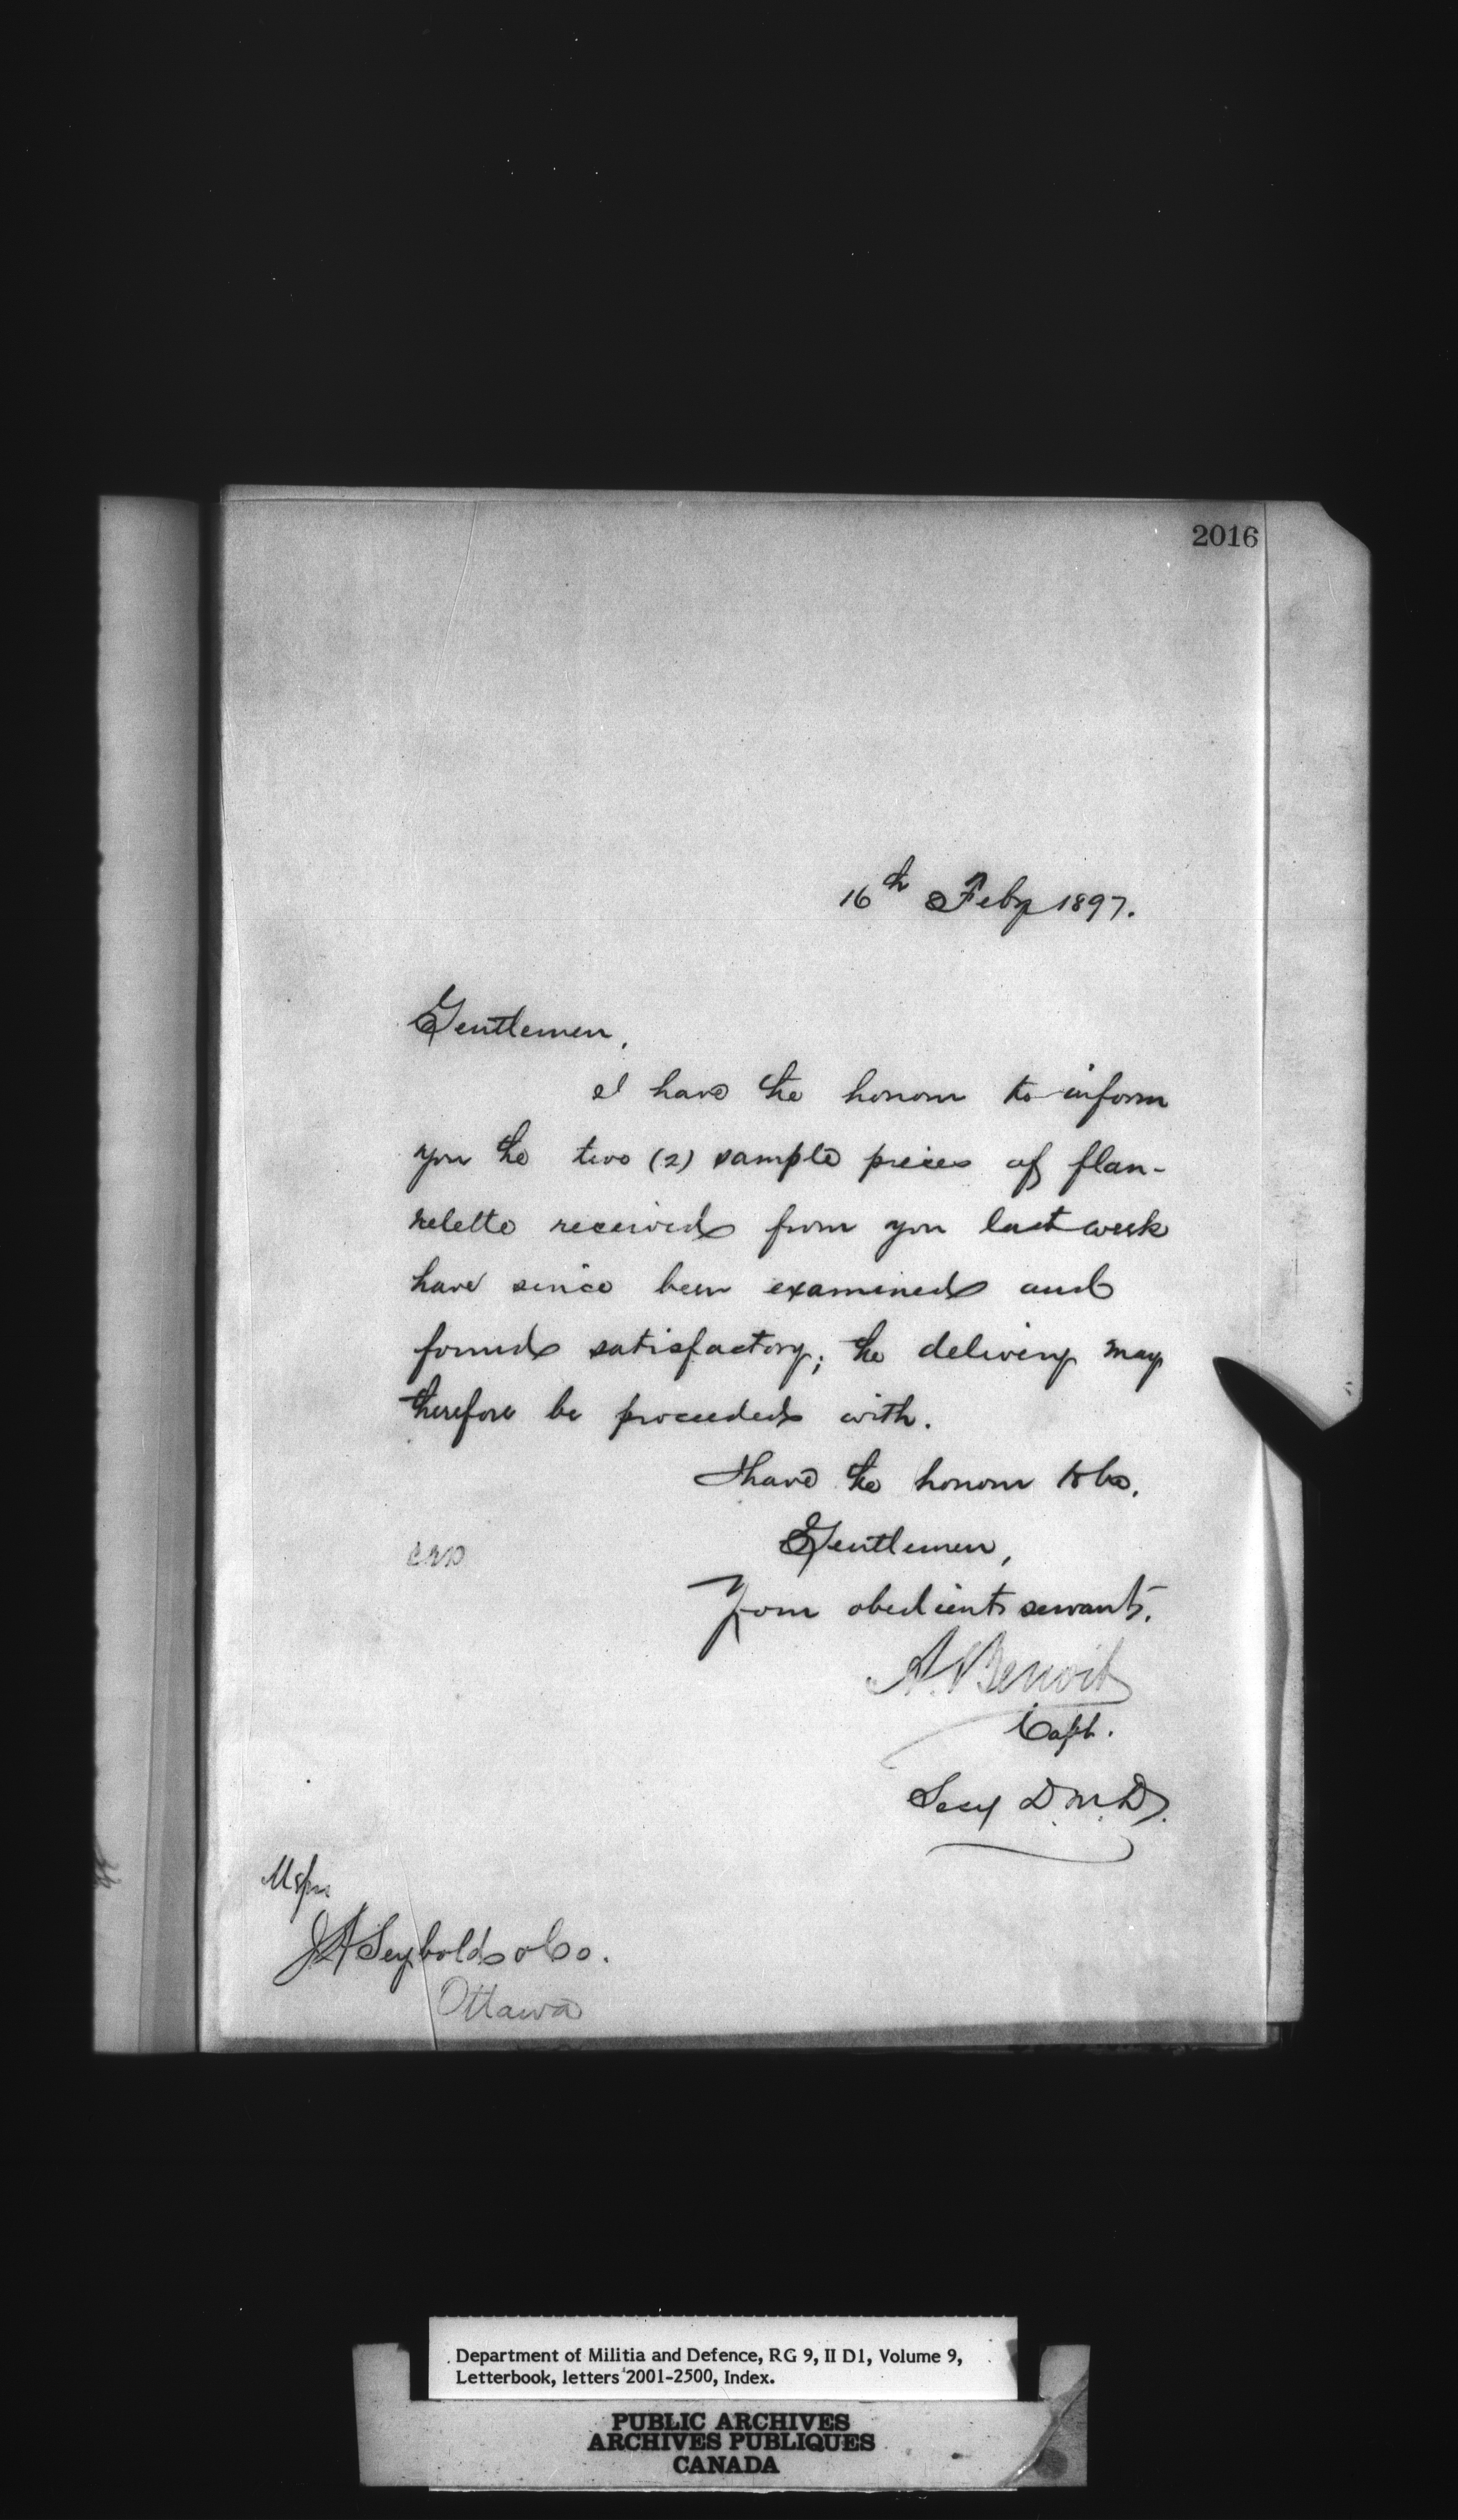 2016
16th Feby 1897.
Gentlemen,
I have the honour to inform
you the two (2) sample pieces of flan-
nelette received from you last week
have since been examined and
found satisfactory; the delivery may
therefore be proceeded with.
I have the honour to be,
Gentlemen,
Your obedient servant,
A. Benoit
Capt.
Secy D.M.D.
Messrs
J A Seybold & Co.
Ottawa
Department of Militia and Defence, RG 9, II D1, Volume 9,
Letterbook, letters 2001-2500, Index.
PUBLIC ARCHIVES
ARCHIVES PUBLIQUES
CANADA